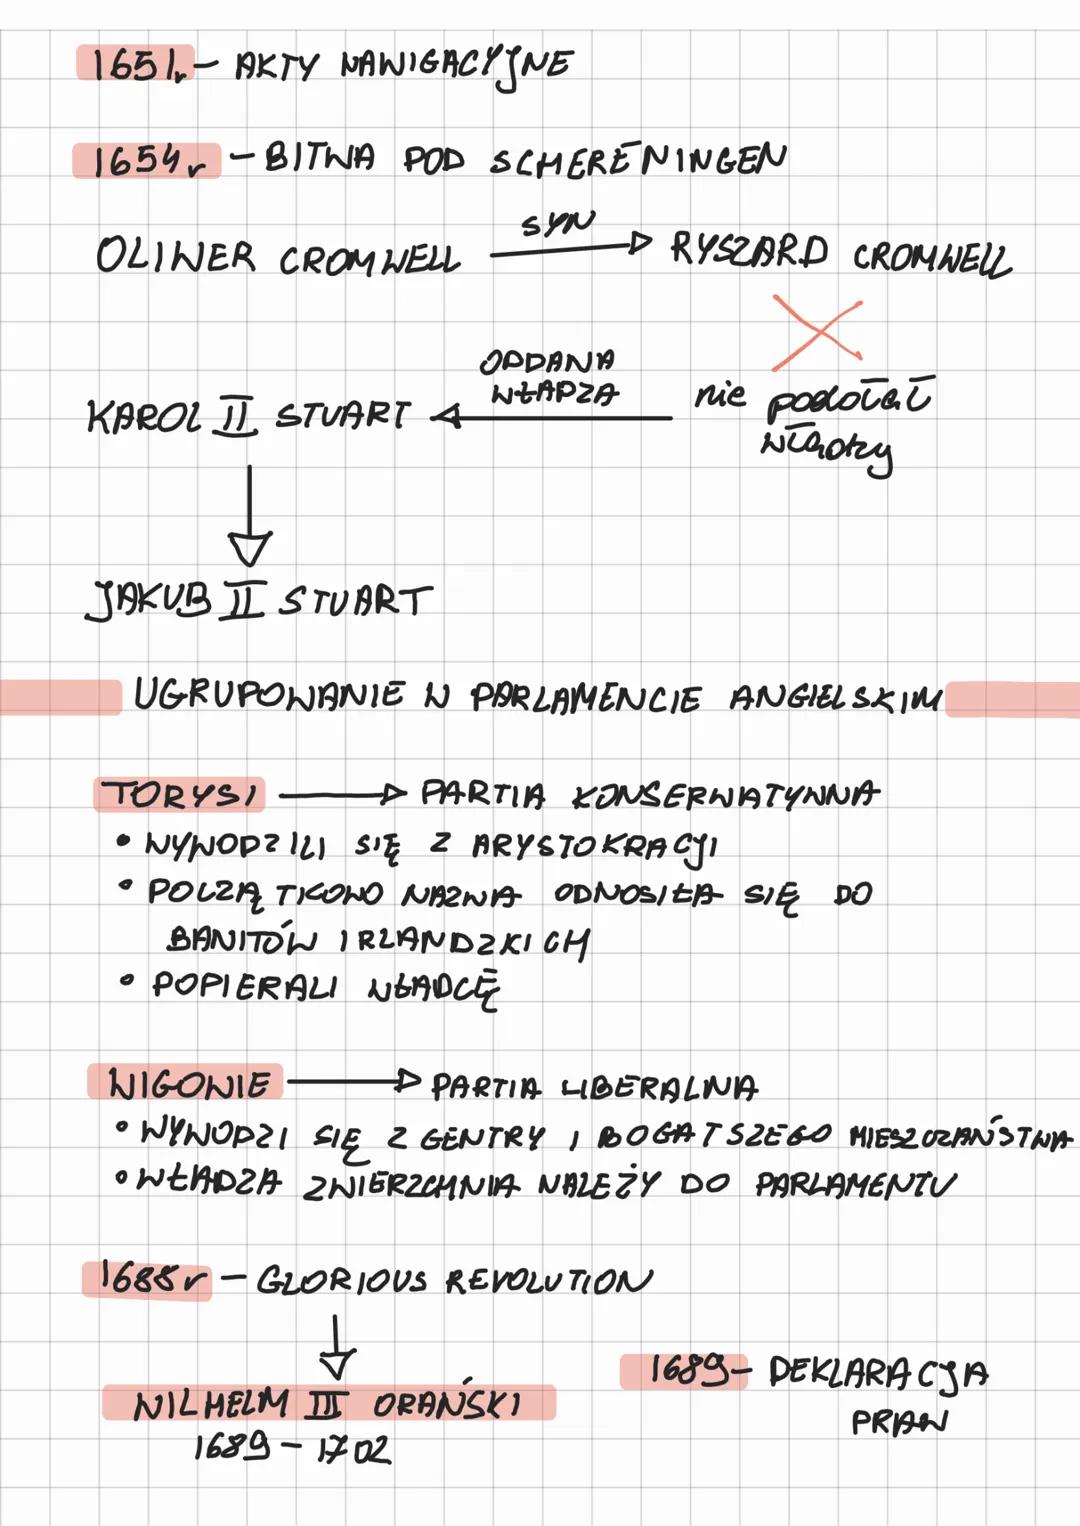 1651r – AKTY NAWIGACYJNE
1654r – BITWA POD SCHERENINGEN
OLIWER CROMWELL SYN RYSZARD CROMWELL
KAROL II STUART ODDANA WŁADZA nie podołał władzy
JAKUB II STUART
UGRUPOWANIE W PARLAMENCIE ANGIELSKIM
TORYSI PARTIA KONSERWATYWNA
• WYWODZILI SIĘ Z ARYSTOKRACJI
• POCZĄTKOWO NAZWA ODNOSIŁA SIĘ DO
BANITÓW IRLANDZKICH
• POPIERALI WŁADCĘ
WIGOWIE PARTIA LIBERALNA
• WYWODZI SIĘ Z GENTRY I BOGATSZEGO MIESZCZAŃSTWA
• WŁADZA ZWIERZCHNIA NALEŻY DO PARLAMENTU
1688r – GLORIOUS REVOLUTION
WILHELM III ORAŃSKI
1689 – 1702
1689 – DEKLARACJA
PRAW